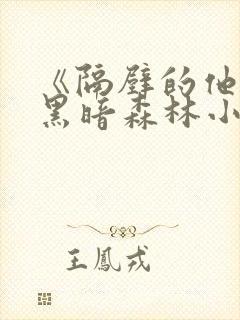 《隔壁的他
黑暗森林小
王鳳戎